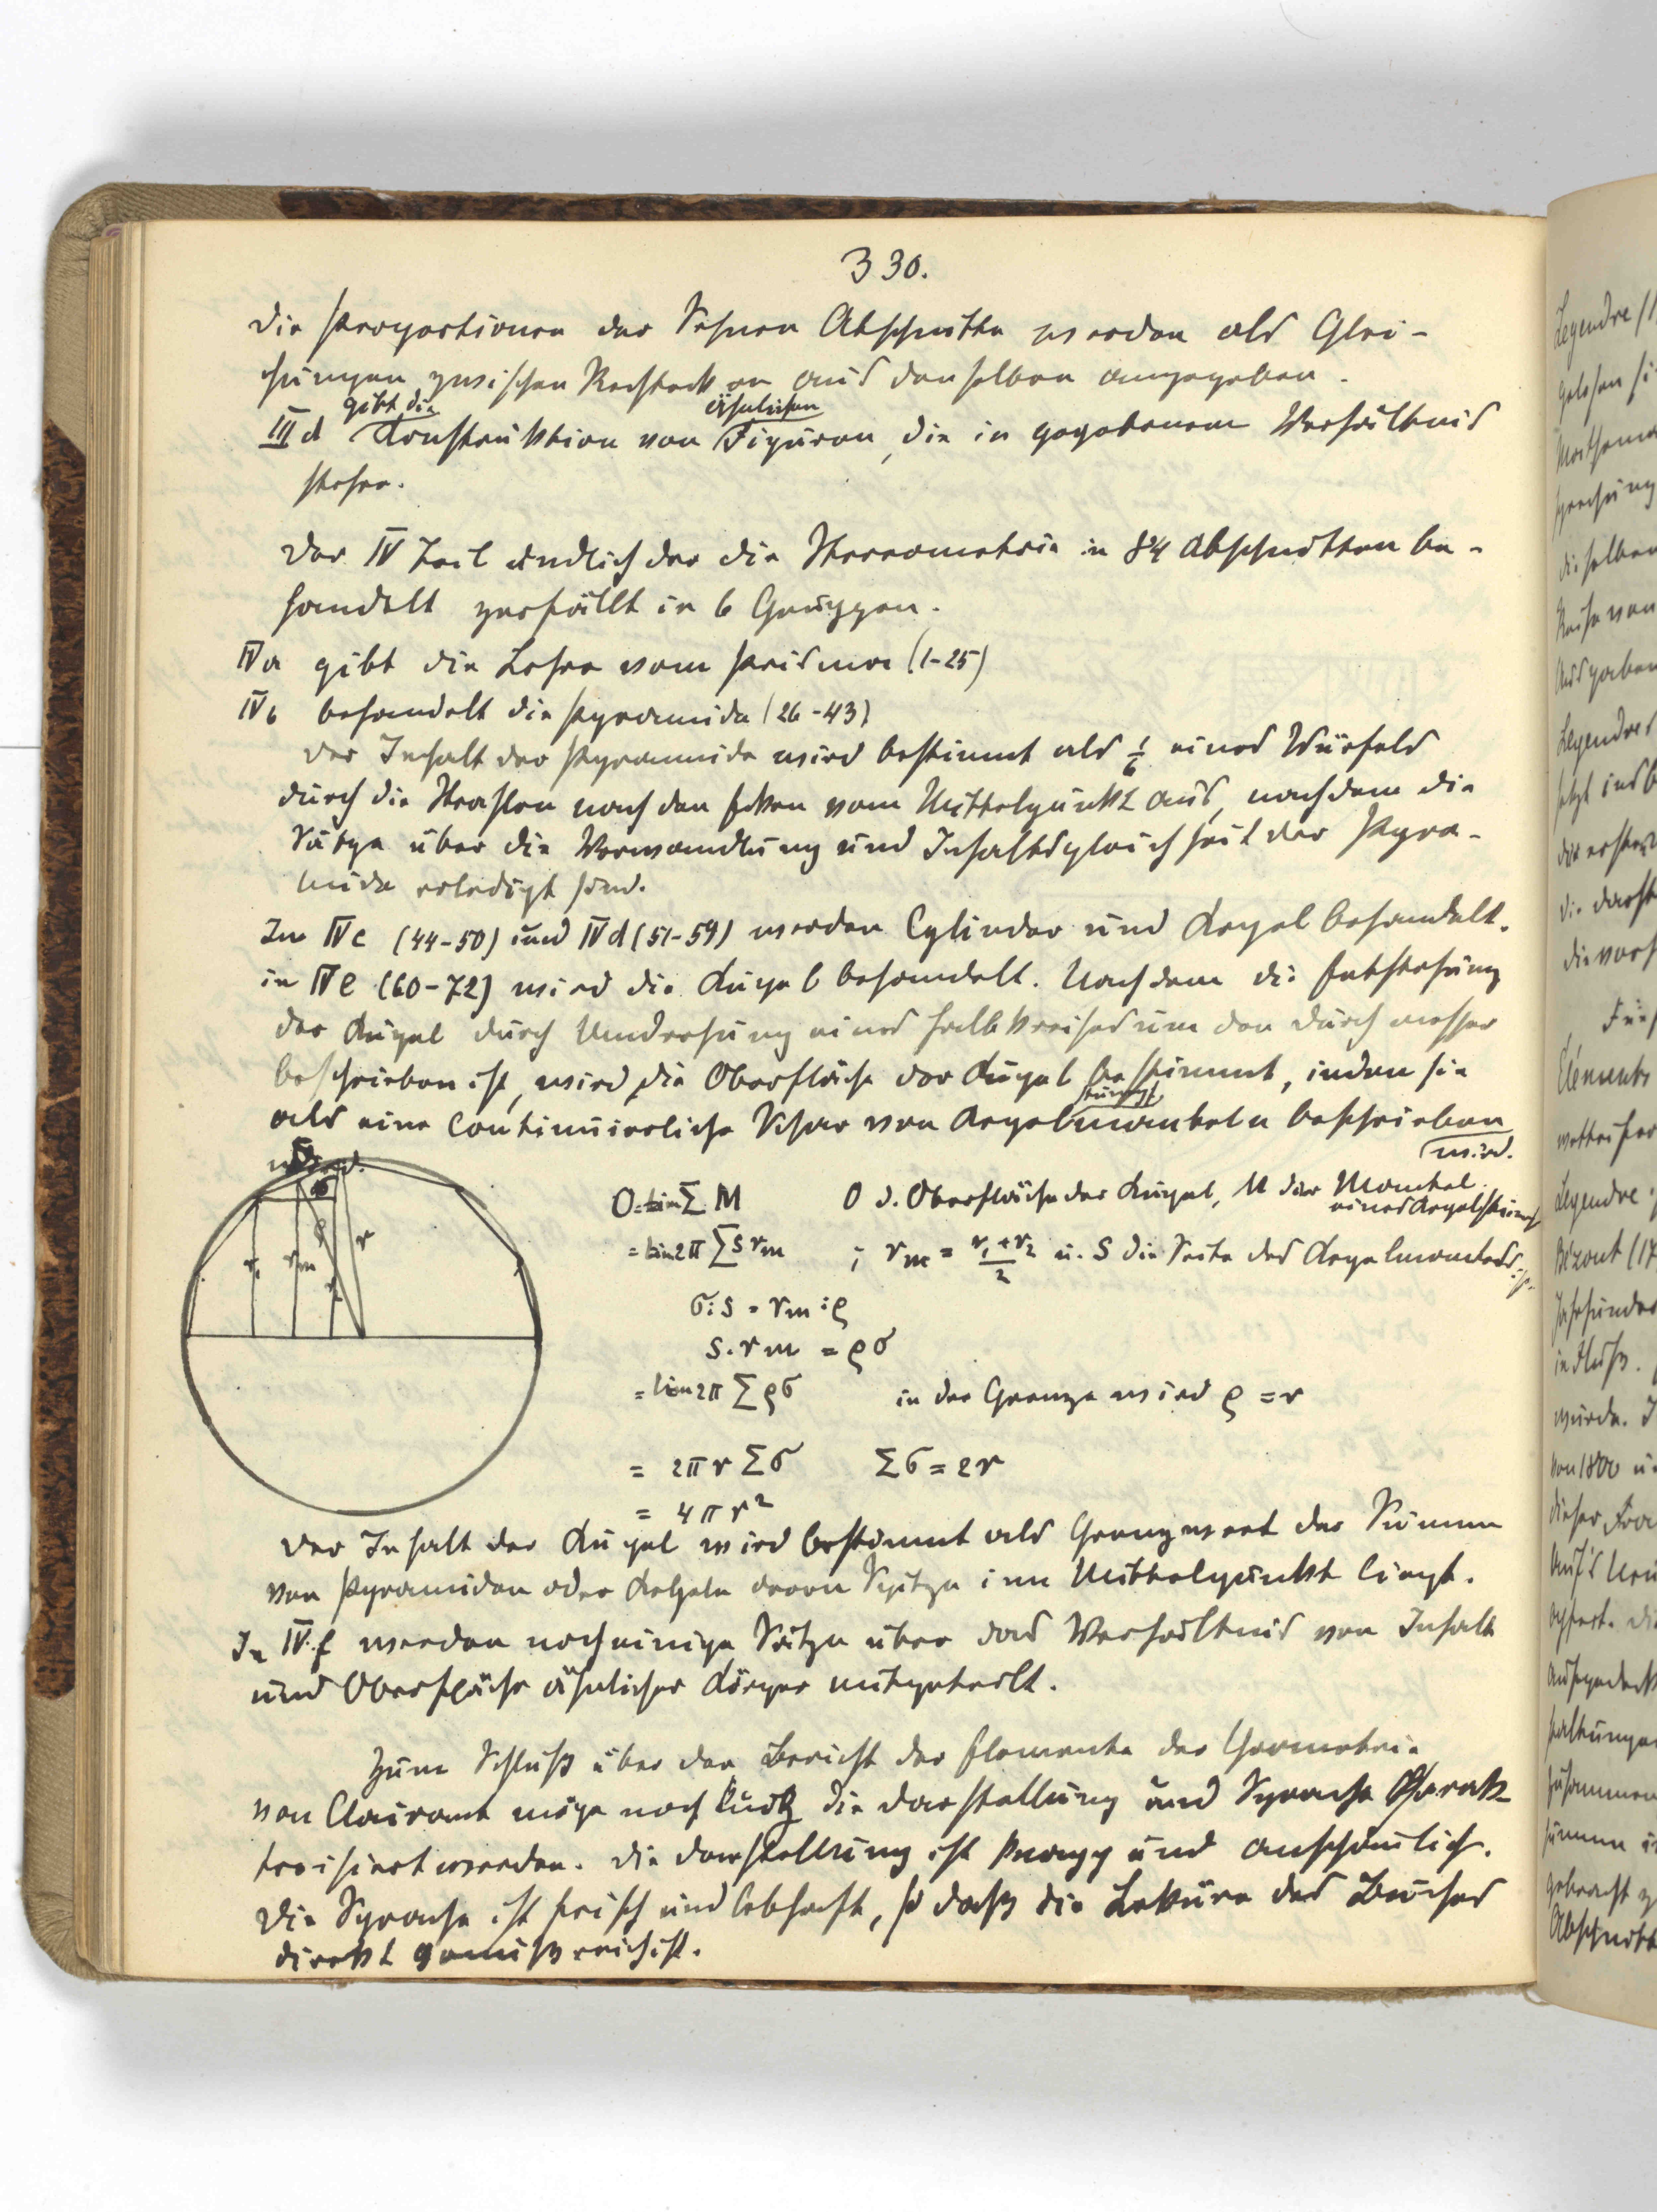 330.
Die Proportionen der Sehnen Abschnitte werden als Glei-
chungen zwischen Rechtecken aus denselben angegeben.
III d gibt die Konstruktion von ähnlichen Figuren, die in gegebenem Verhältnis
stehen.
Der IV Teil endlich der die Stereometrie in 84 Abschnitten be-
handelt zerfällt in 6 Gruppen.
IV a gibt die Lehre vom Prisma (1-25)
IV b behandelt die Pyramide (26-43)
Der Inhalt der Pyramide wird bestimmt als 1/6 eines Würfels
durch die Strahlen nach den Ecken vom Mittelpunkt aus, nachdem die
Sätze über die Verwandlung und Inhaltsgleichheit der Pyra-
mide erledigt sind.
In IV c (44-50) und IV d (51-59) werden Cylinder und Kegel behandelt.
in IV e (60-72) wird die Kugel behandelt. Nachdem die Entstehung
der Kugel durch Umdrehung eines Halbkreises um den Durchmesser
beschrieben ist, wird die Oberfläche der Kugel bestimmt, indem sie
als eine continuierliche Schar von Kegelstumpfmanteln beschrieben
wird.
O = lim Σ M O d. Oberfläche der Kugel, M der Mantel
eines Kegelstumpfs
= lim 2π Σ s rm ; rm = (r1 + r2)/2 u. s die Seite des Kegelmantels
σ : s = rm : ρ
s . rm = ρ σ
= lim 2π Σ ρσ in der Grenze wird ρ = r
= 2π r Σ σ Σ σ = 2r
= 4 π r²
r1 rm r2 ρ r σ
Der Inhalt der Kugel wird bestimmt als Grenzwert der Summe
von Pyramiden oder Kegeln deren Spitze im Mittelpunkt liegt.
In IV f werden noch einige Sätze über das Verhältnis von Inhalt
und Oberfläche ähnlicher Körper mitgeteilt.
Zum Schluß über den Bericht der Elemente der Geometrie
von Clairaut möge noch kurz die Darstellung und Sprache Charak-
terisiert werden. Die Darstellung ist knapp und anschaulich.
Die Sprache ist frisch und lebhaft, so daß die Lektüre des Buches
direkt genußreich ist.